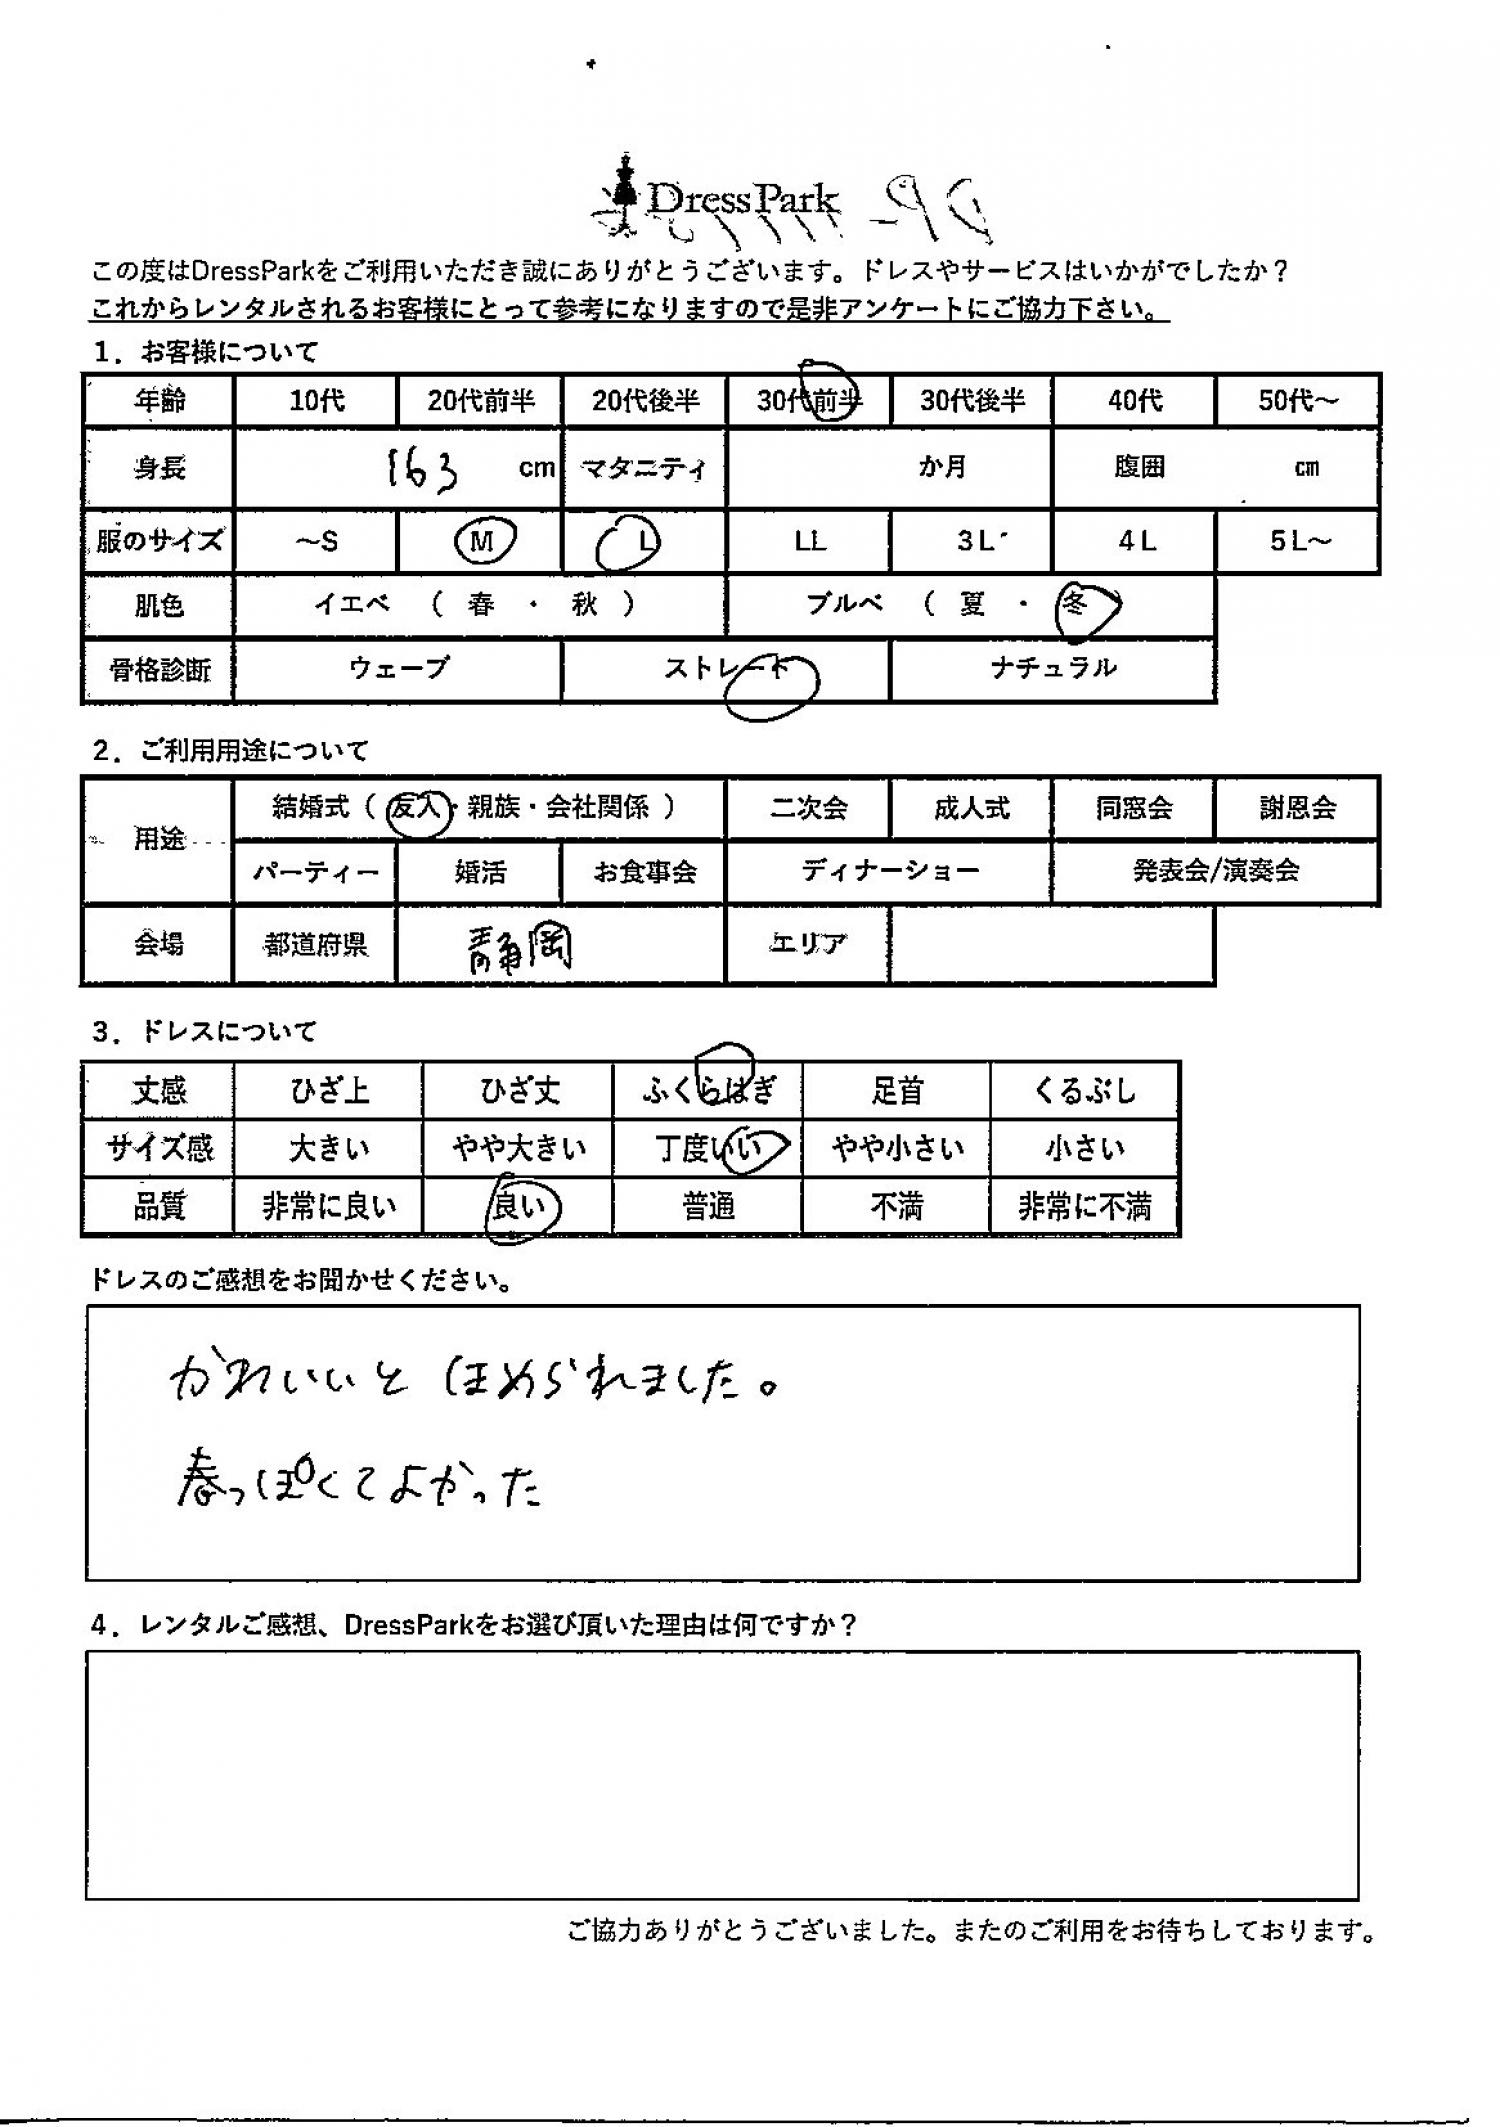 DressPark
この度はDressParkをご利用いただき誠にありがとうございます。ドレスやサービスはいかがでしたか？
これからレンタルされるお客様にとって参考になりますので是非アンケートにご協力下さい。
1．お客様について
年齢 10代 20代前半 20代後半 30代前半 30代後半 40代 50代～
身長 163 cm マタニティ か月 腹囲 ㎝
服のサイズ ～S M L LL 3L 4L 5L～
肌色 イエベ （ 春 ・ 秋 ） ブルベ （ 夏 ・ 冬 ）
骨格診断 ウェーブ ストレート ナチュラル
2．ご利用用途について
用途 結婚式（ 友人・親族・会社関係 ） 二次会 成人式 同窓会 謝恩会
パーティー 婚活 お食事会 ディナーショー 発表会/演奏会
会場 都道府県 静岡 エリア
3．ドレスについて
丈感 ひざ上 ひざ丈 ふくらはぎ 足首 くるぶし
サイズ感 大きい やや大きい 丁度いい やや小さい 小さい
品質 非常に良い 良い 普通 不満 非常に不満
ドレスのご感想をお聞かせください。
かわいいと ほめられました。
春っぽくてよかった
4．レンタルご感想、DressParkをお選び頂いた理由は何ですか？
ご協力ありがとうございました。またのご利用をお待ちしております。